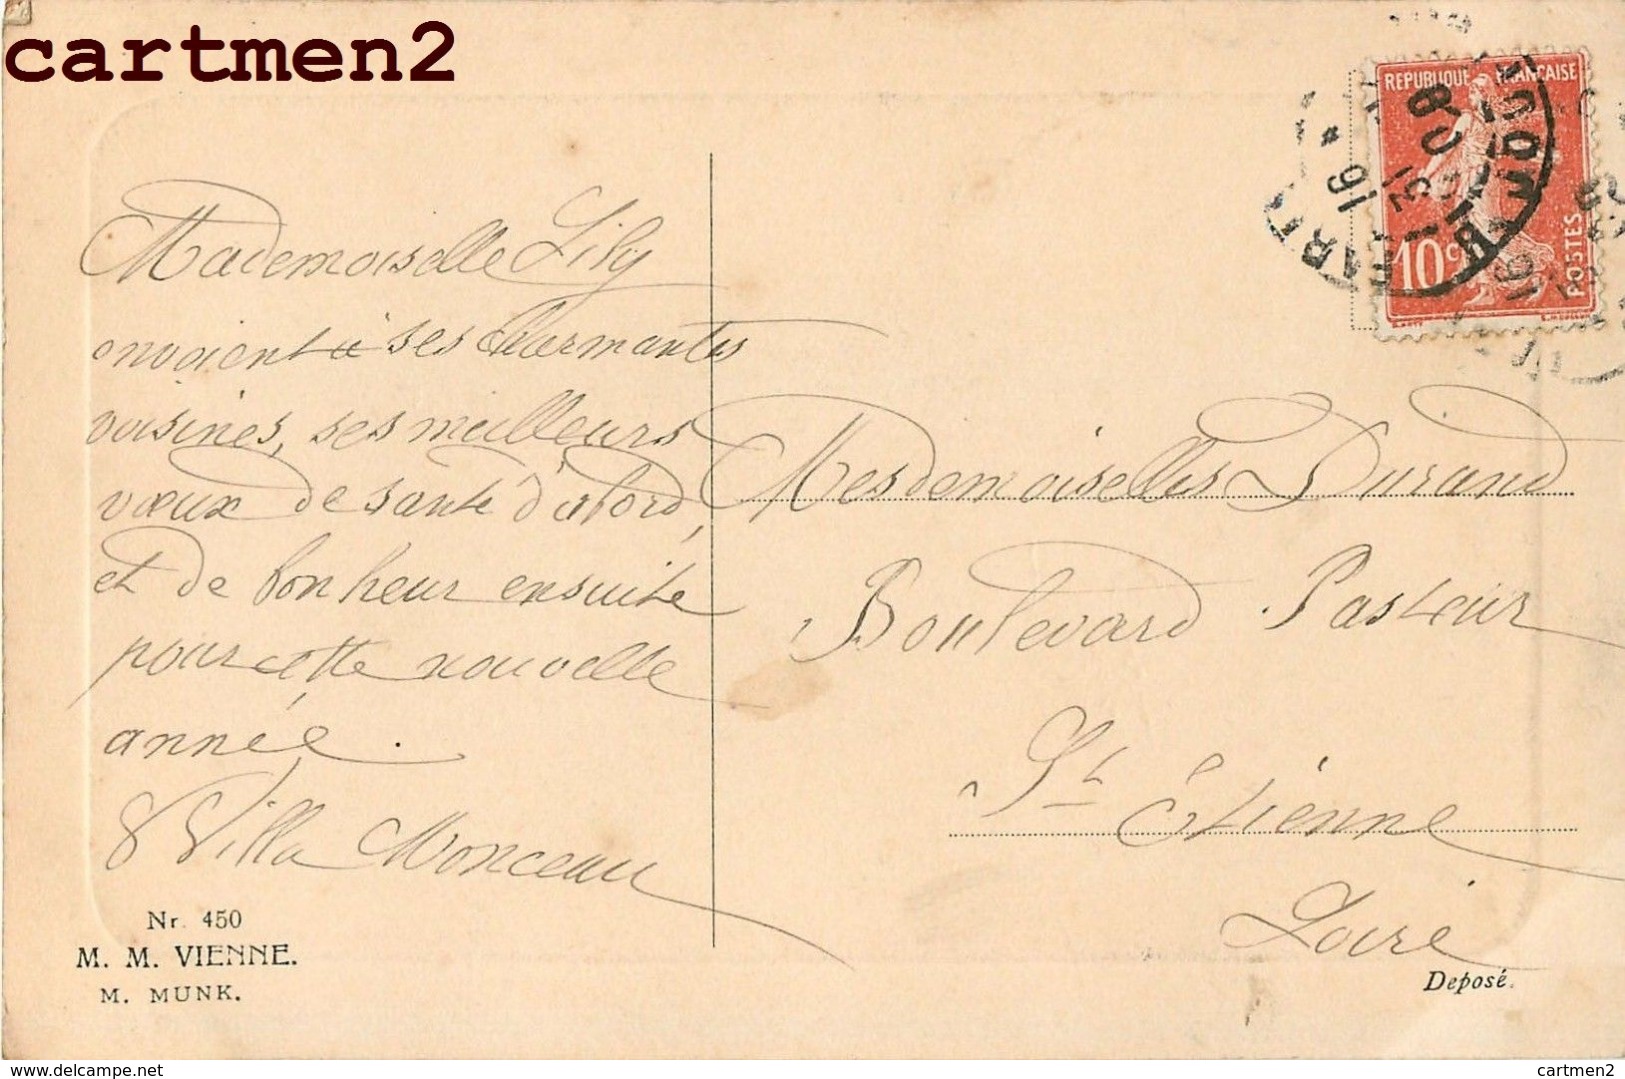 cartmen2
REPUBLIQUE FRANÇAISE
10c
POSTES
Mademoiselle Lily
envoient à ses charmantes
voisines, ses meilleurs
vœux de santé d'abord,
et de bonheur ensuite
pour cette nouvelle
année.
8 Villa Monceau
Mesdemoiselles Durand
Boulevard Pasteur
St Etienne
Loire
Nr. 450
M. M. VIENNE.
M. MUNK.
Deposé.
delcampe.net
cartmen2